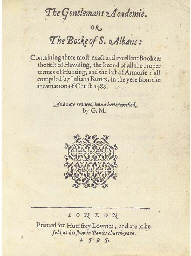 The Gentlemans Academie.
OR,
The Booke of S. Albans:
Containing three most exact and excellent Bookes:
the first of Hawking, the second of all the proper
termes of Hunting, and the last of Armorie: all
compiled by Iuliana Barnes, in the yere from the
incarnation of Christ 1486.
And now reduced into a better method,
by G. M.
LONDON
Printed for Humfrey Lownes, and are to be
sold at his shop in Paules Church-yard.
1595.